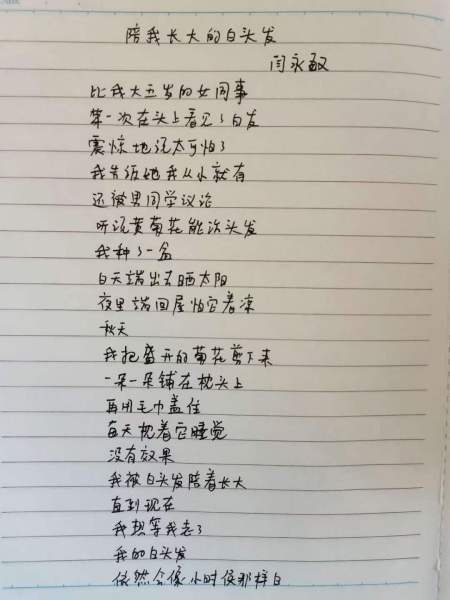 陪我长大的白头发
闫永敏
比我大五岁的女同事
第一次在头上看见了白发
震惊地说太可怕了
我告诉她我从小就有
还被男同学议论
听说黄菊花能治头发
我种了一盆
白天端出去晒太阳
夜里端回屋怕它着凉
秋天
我把盛开的菊花剪下来
一朵一朵铺在枕头上
再用毛巾盖住
每天枕着它睡觉
没有效果
我被白头发陪着长大
直到现在
我想等我老了
我的白头发
依然会像小时侯那样白